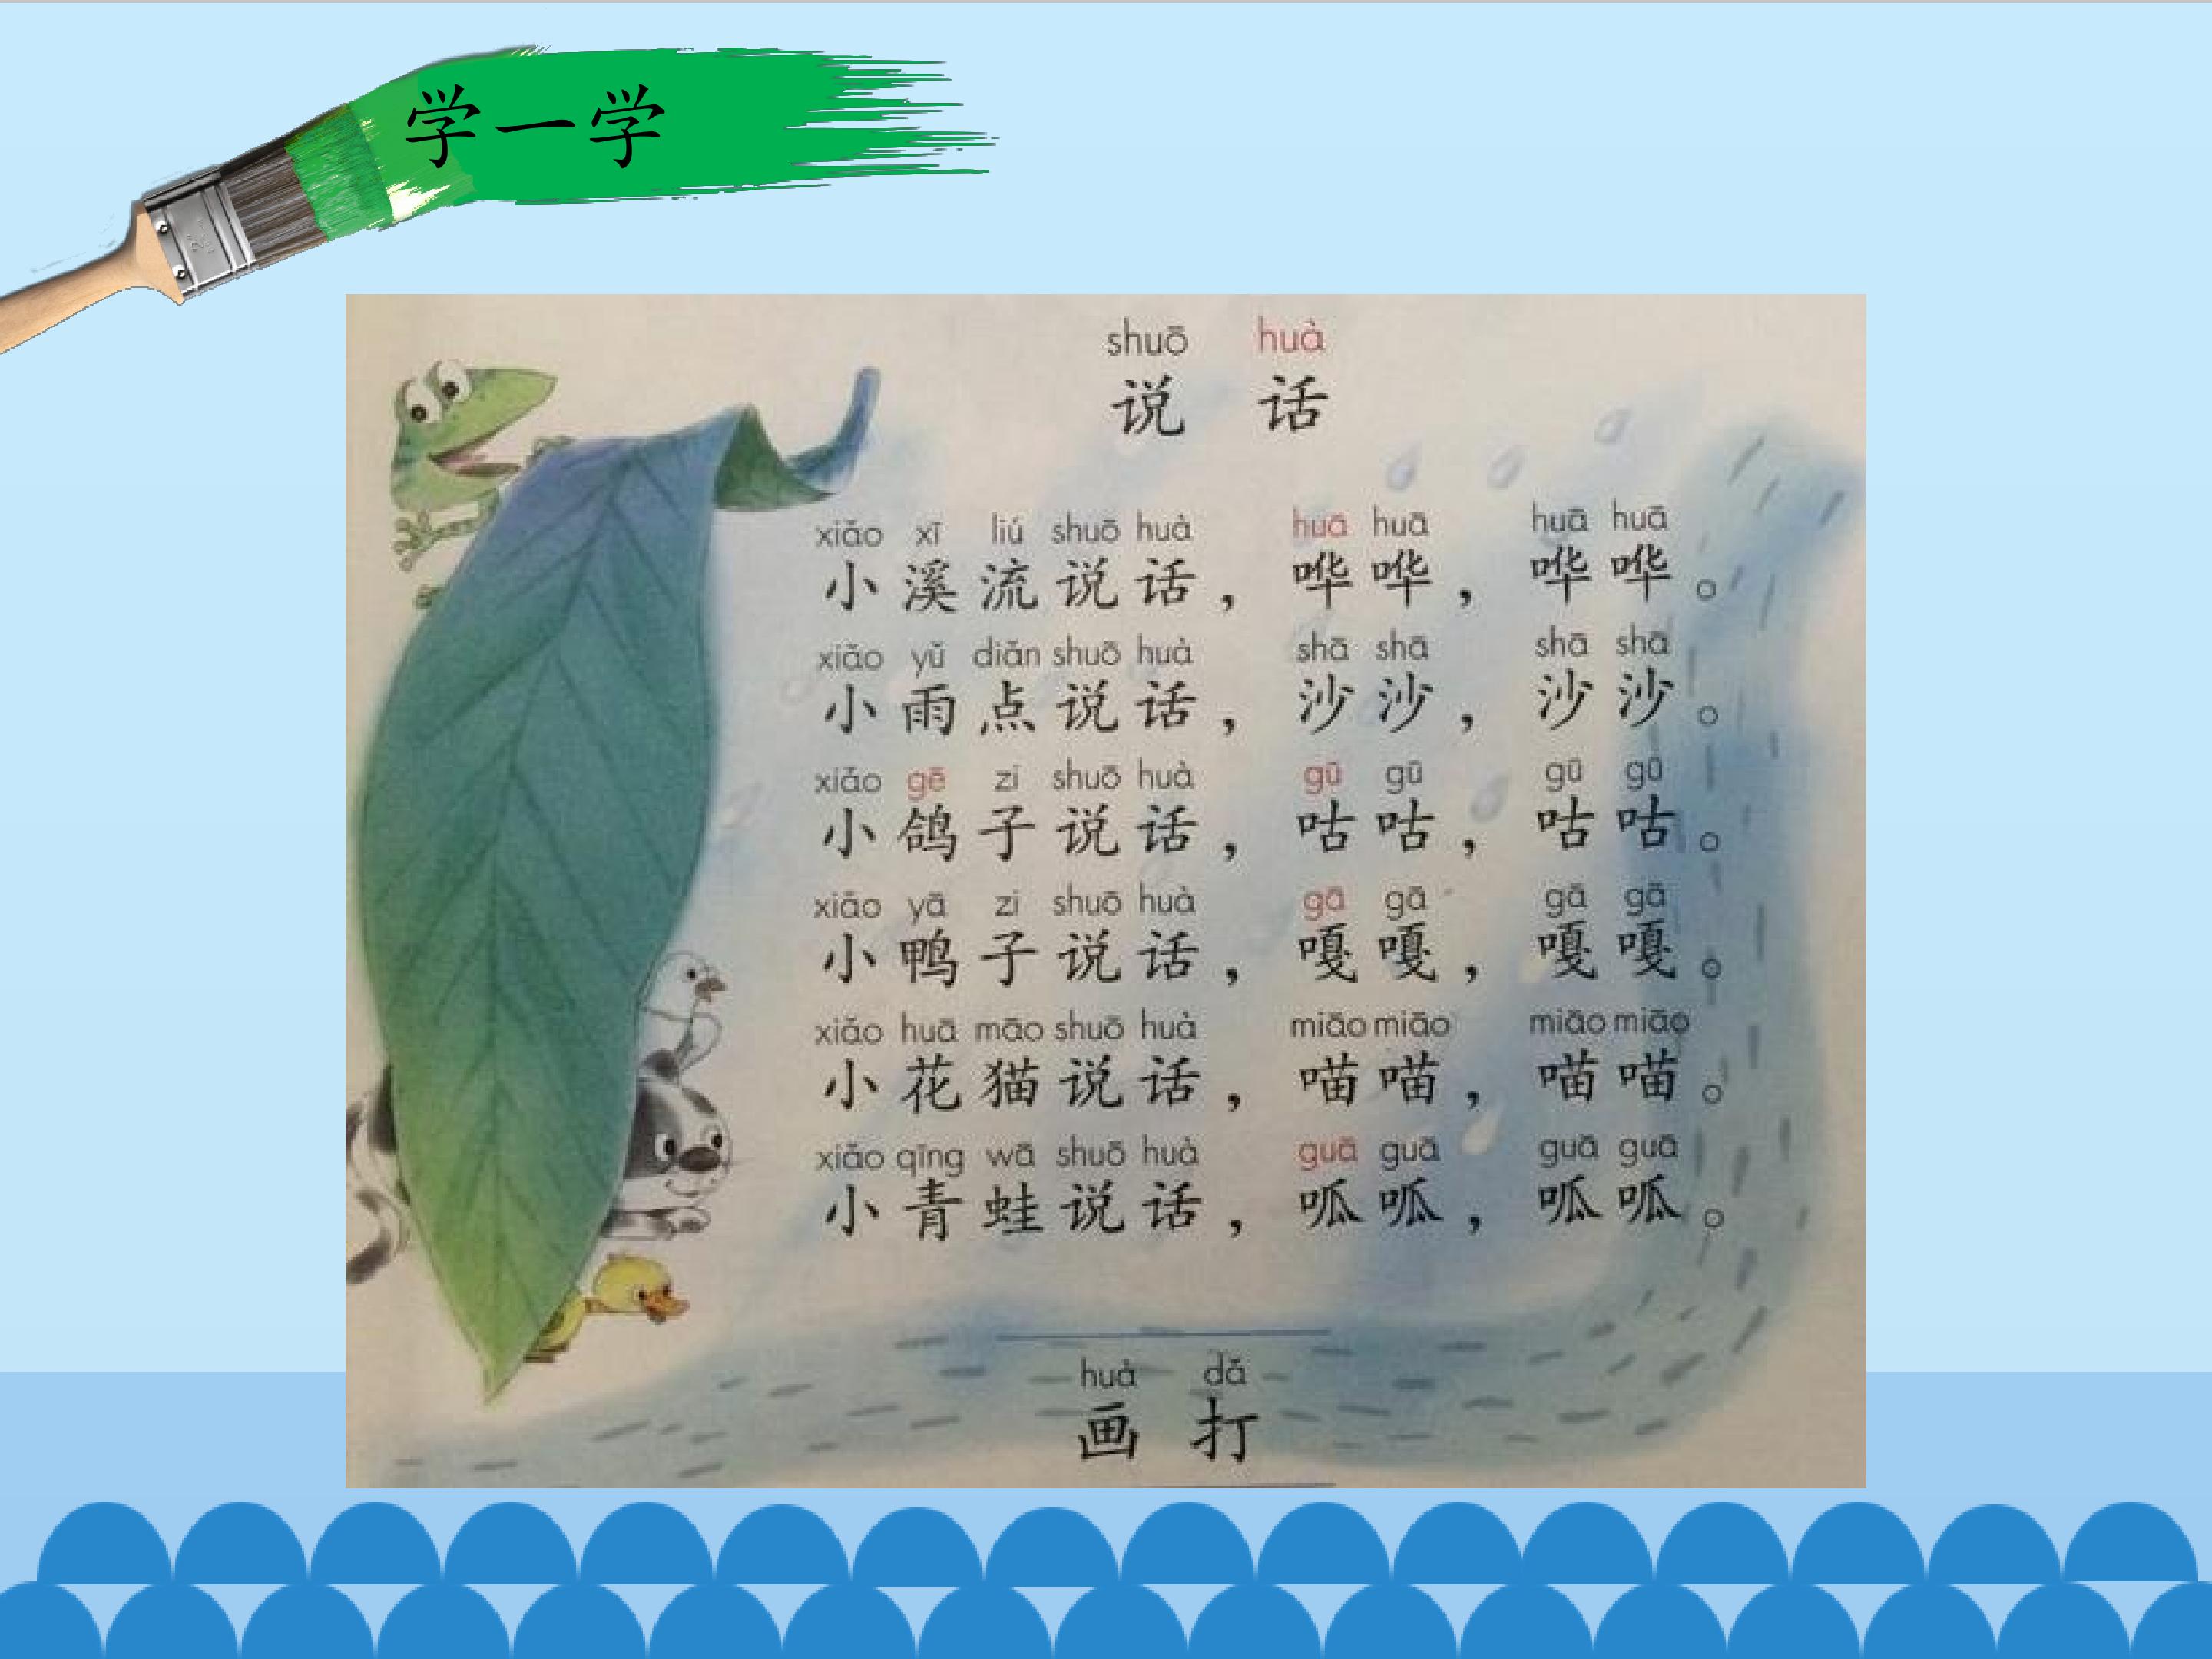 学一学
shuō huà
说 话
xiǎo xī liú shuō huà huā huā huā huā
小溪流说话，哗哗，哗哗。
xiǎo yǔ diǎn shuō huà shā shā shā shā
小雨点说话，沙沙，沙沙。
xiǎo gē zi shuō huà gū gū gū gū
小鸽子说话，咕咕，咕咕。
xiǎo yā zi shuō huà gā gā gā gā
小鸭子说话，嘎嘎，嘎嘎。
xiǎo huā māo shuō huà miāo miāo miāo miāo
小花猫说话，喵喵，喵喵。
xiǎo qīng wā shuō huà guā guā guā guā
小青蛙说话，呱呱，呱呱。
huà dǎ
画 打